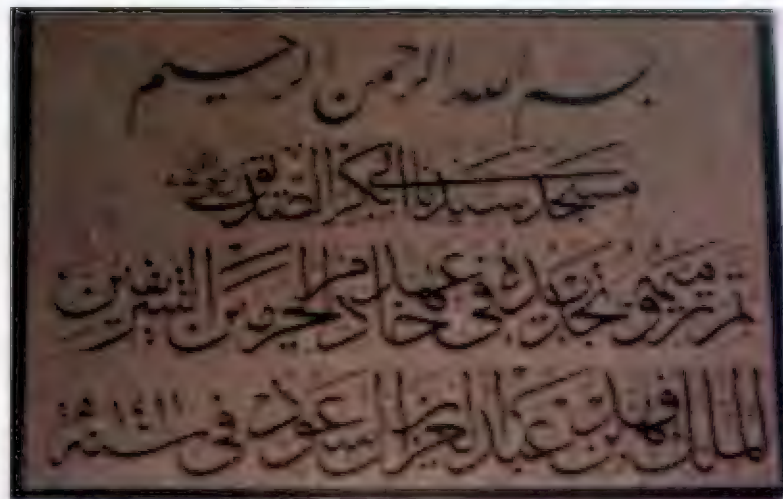 بسم الله الرحمن الرحيم
مسجد سيدنا أبي بكر الصديق
تم ترميمه وتجديده في عهد خادم الحرمين الشريفين
الملك فهد بن عبد العزيز آل سعود في سنة ١٤١١ هـ